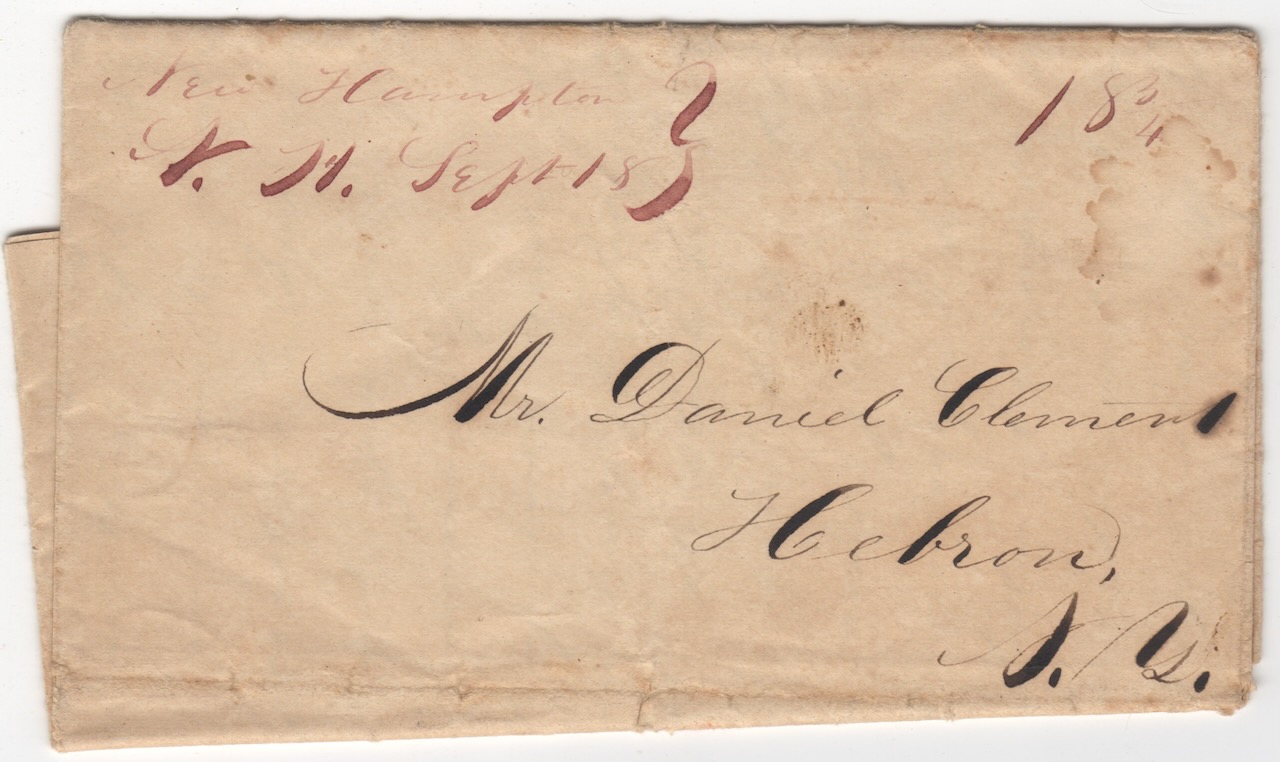 New Hampton
N. H. Sept 18
18 3/4
Mr. Daniel Clement
Hebron,
N. Y.